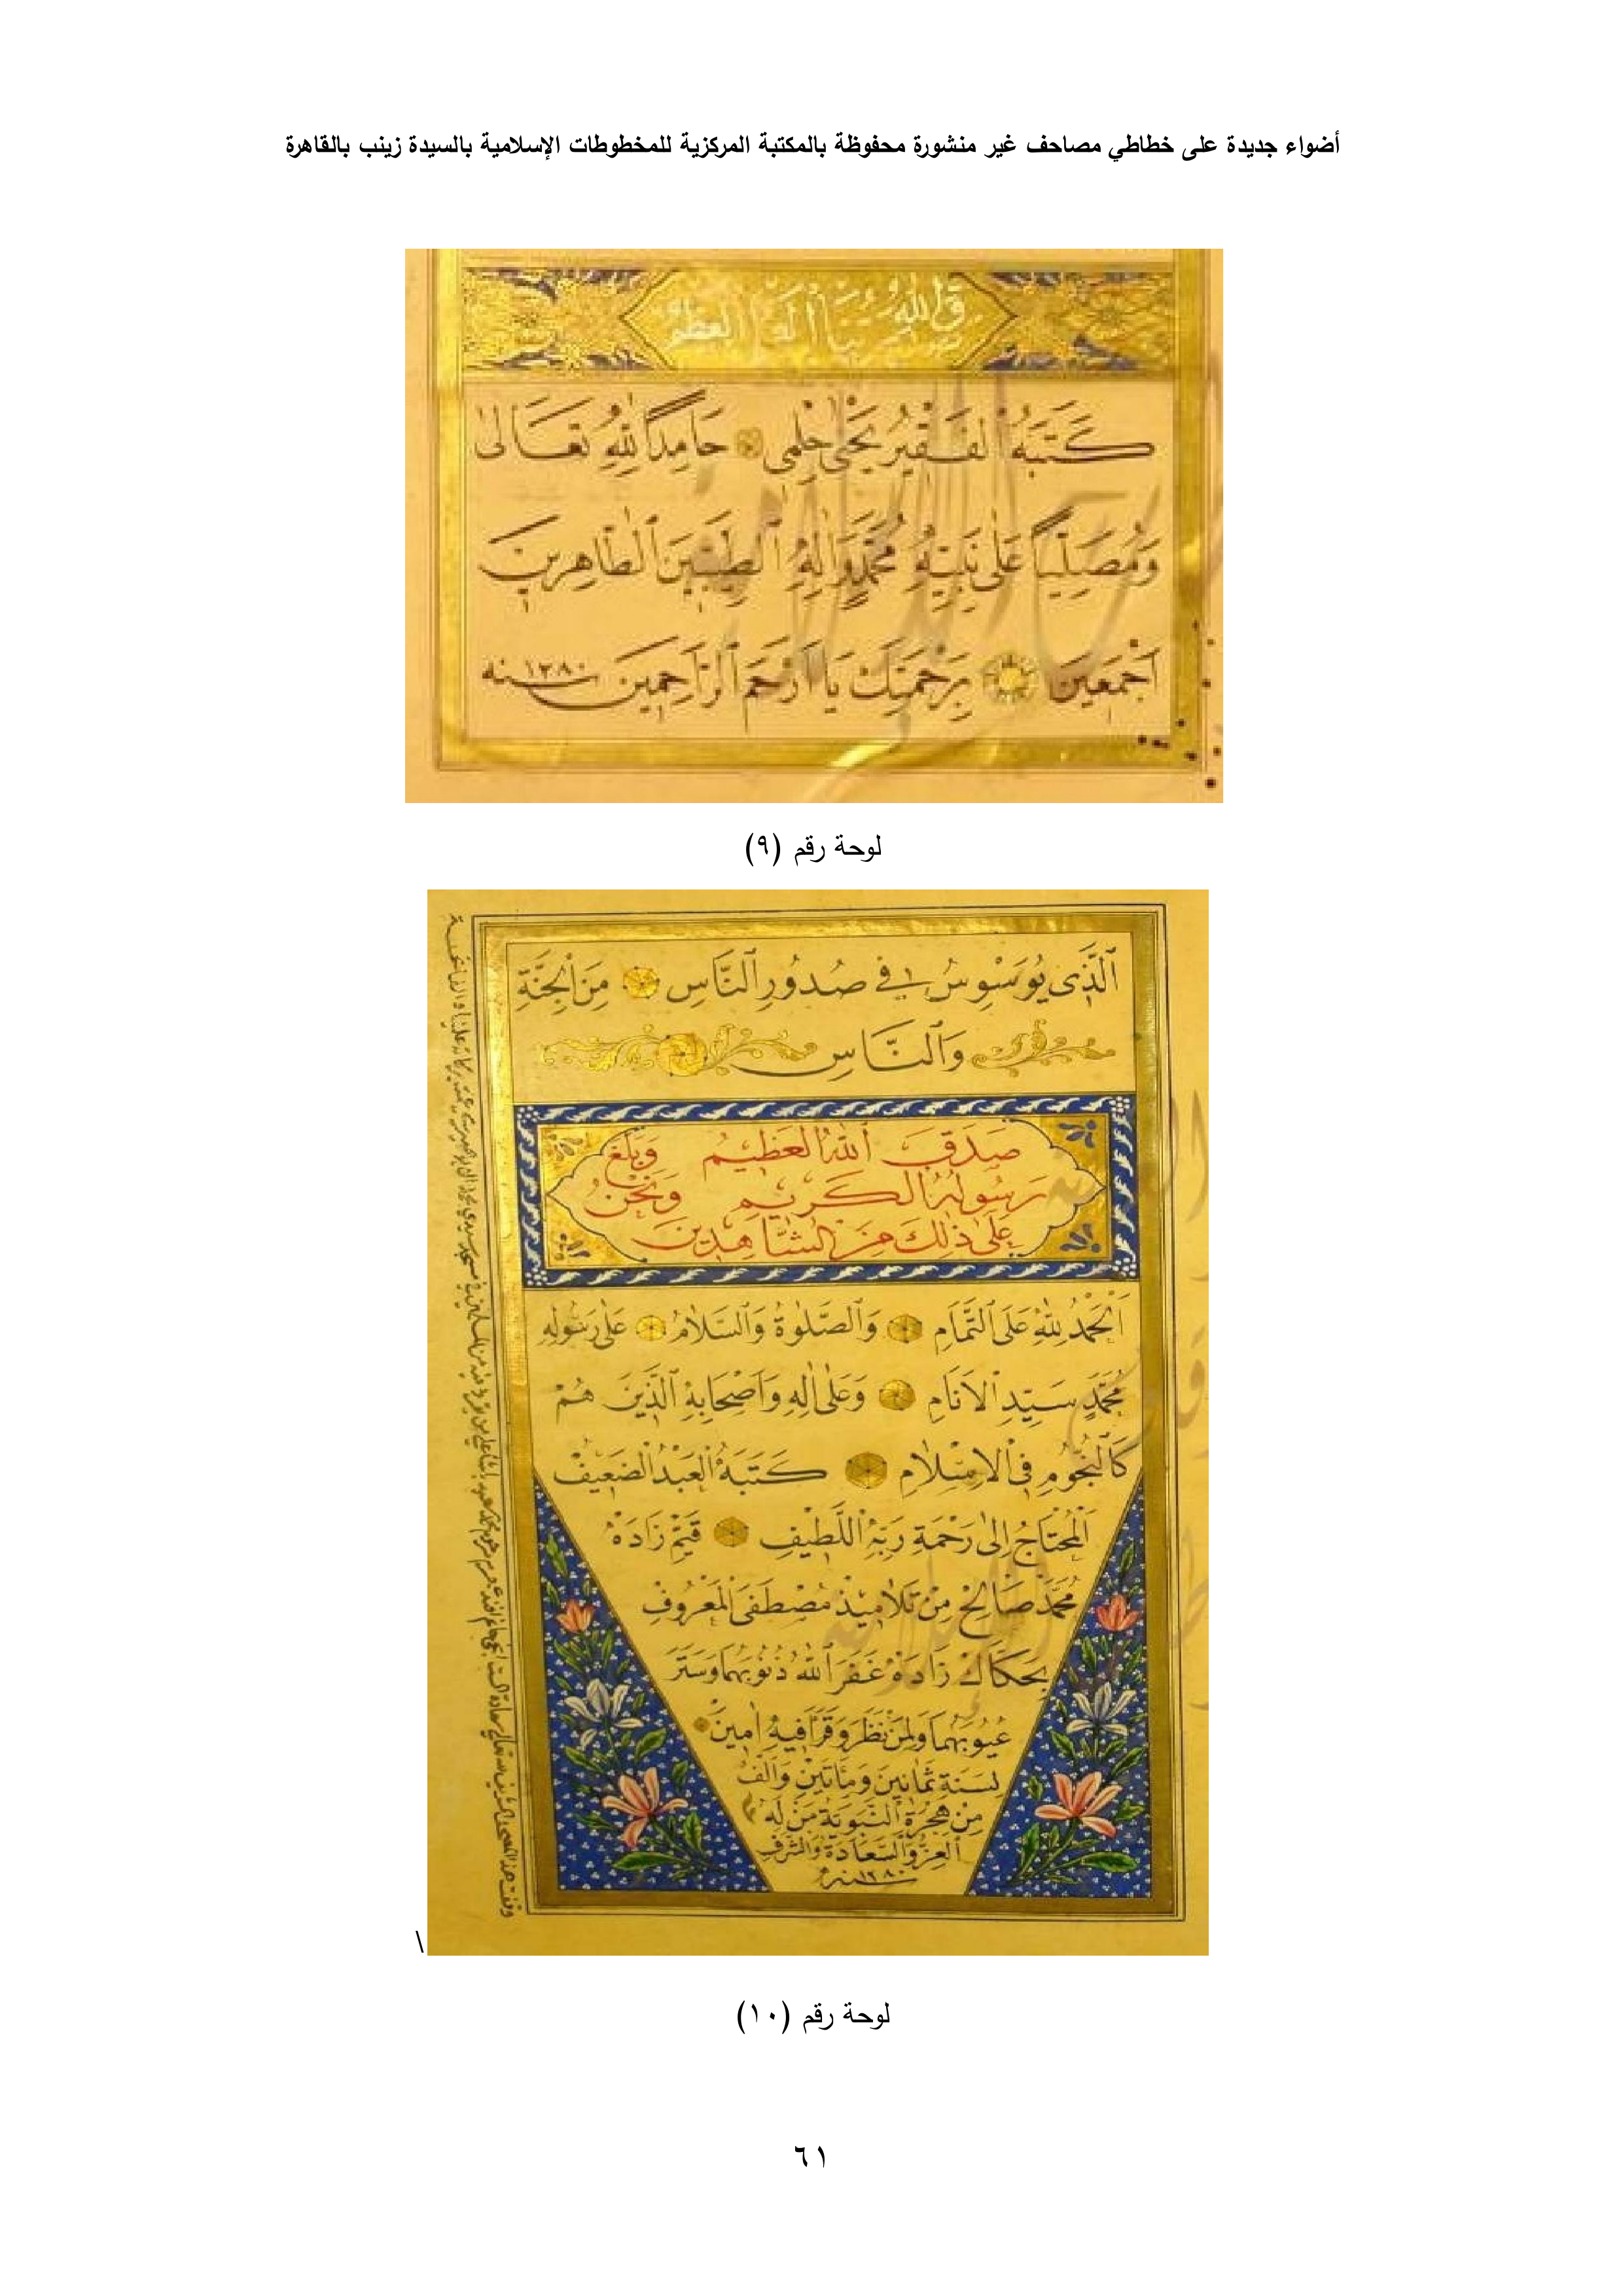 أضواء جديدة على خطاطي مصاحف غير منشورة محفوظة بالمكتبة المركزية للمخطوطات الإسلامية بالسيدة زينب بالقاهرة
كَتَبَهُ الفَقِيرُ يَحْيٰى حِلْمِى حَامِدًا لِلّٰهِ تَعَالىٰ
وَمُصَلِّيًا عَلٰى نَبِيِّهِ مُحَمَّدٍ وَاٰلِهِ الطَّيِّبِينَ الطَّاهِرِينَ
اَجْمَعِينَ بِرَحْمَتِكَ يَا اَرْحَمَ الرَّاحِمِينَ سنه ١٢٨٠
لوحة رقم (٩)
اَلَّذِى يُوَسْوِسُ فِى صُدُورِ النَّاسِ مِنَ الْجِنَّةِ
وَالنَّاسِ
صَدَقَ اللّٰهُ العَظِيمُ وَبَلَّغَ
رَسُولُهُ الكَرِيمِ وَنَحْنُ
عَلٰى ذٰلِكَ مِنَ الشَّاهِدِينَ
اَلْحَمْدُ لِلّٰهِ عَلَى التَّمَامِ وَالصَّلٰوةُ وَالسَّلَامُ عَلٰى رَسُولِهِ
مُحَمَّدٍ سَيِّدِ الْاَنَامِ وَعَلٰى اٰلِهِ وَاَصْحَابِهِ الَّذِينَ هُمْ
كَالنُّجُومِ فِى الْاِسْلَامِ كَتَبَهُ الْعَبْدُ الضَّعِيفُ
اَلْمُحْتَاجُ اِلٰى رَحْمَةِ رَبِّهِ اللَّطِيفِ قَيِّمْ زَادَهْ
مُحَمَّدْ صَالِحْ مِنْ تَلَامِيذْ مُصْطَفَى الْمَعْرُوفِ
بِحَكَّاكْ زَادَهْ غَفَرَ اللّٰهُ ذُنُوبَهُمَا وَسَتَرَ
عُيُوبَهُمَا وَلِمَنْ نَظَرَ وَقَرَأَ فِيهِ اٰمِينْ
لِسَنَةِ ثَمَانِينَ وَمِأَتَيْنِ وَاَلْفْ
مِنْ هِجْرَةِ النَّبَوِيَّةِ مَنْ لَهُ
الْعِزُّ وَالسَّعَادَةُ وَالشَّرَفُ
سنه ١٢٨٠
\
لوحة رقم (١٠)
٦١